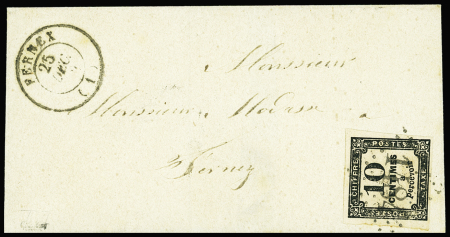 FERNEX
25
DEC
(1)
Monsieur
Monsieur
Fernex
POSTES
CHIFFRE
TAXE
10
CENTIMES
à
Percevoir
POSTES